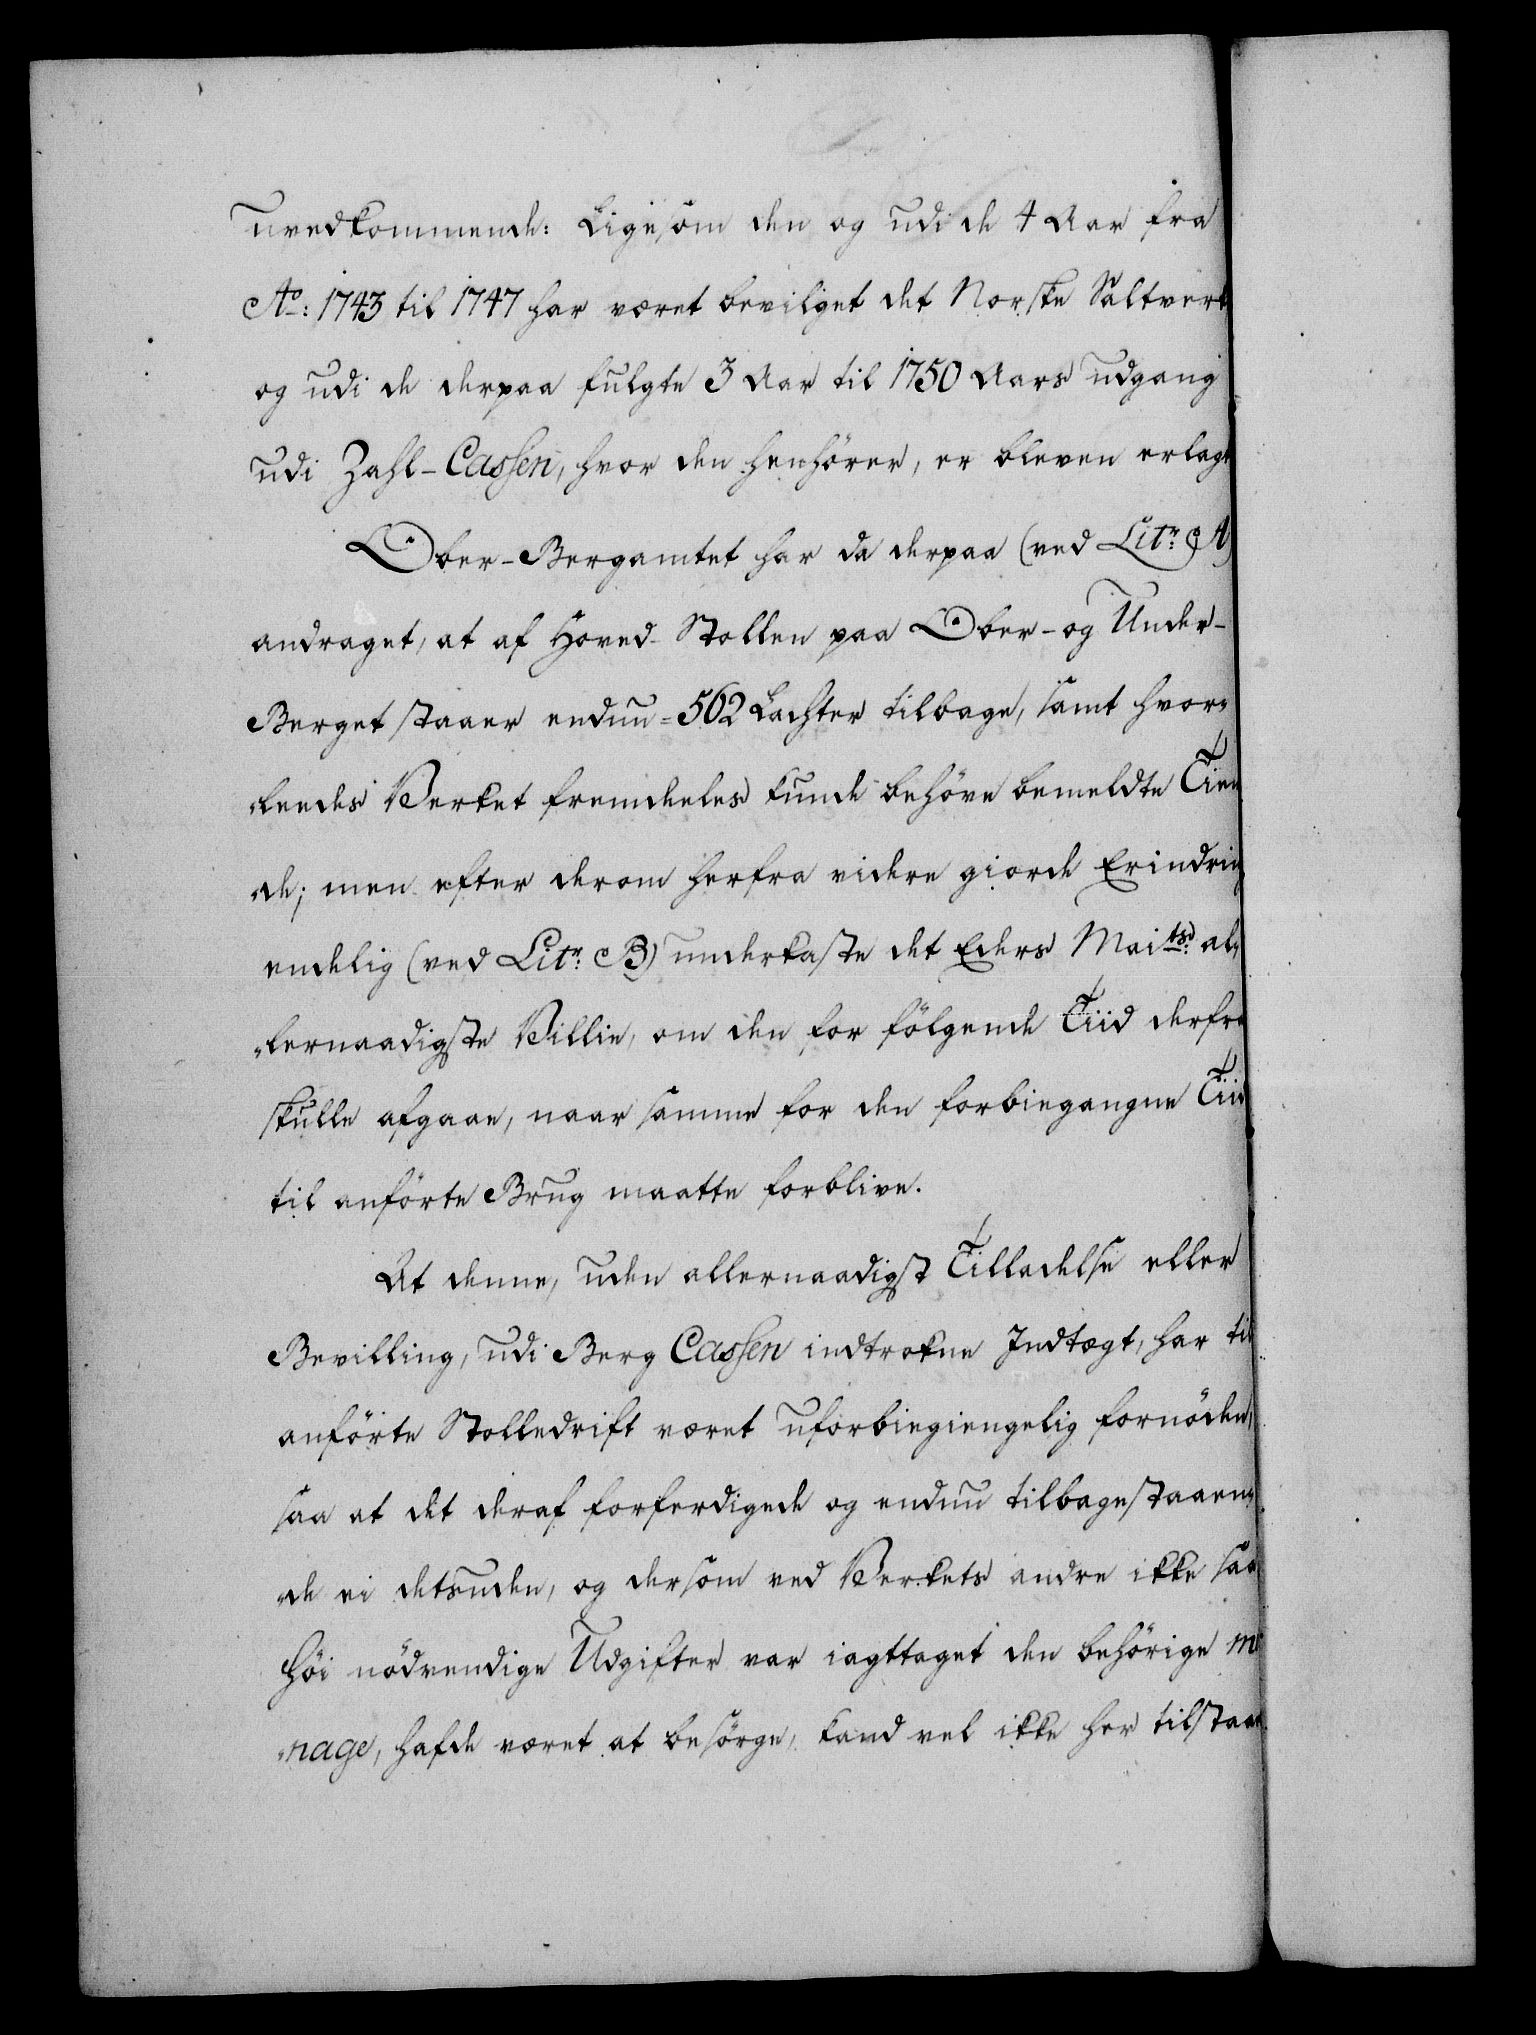 uvedkommende: Ligesom den og udi de 4 Aar fra
Ao: 1743 til 1747 har været bevilget det Norske Saltverk
og udi de derpaa fulgte 3 Aar til 1750 Aars udgang
udi Zahl-Cassen, hvor den henhörer, er bleven erlagt
Ober-Bergamtet har da derpaa (ved Litr: A)
andraget, at af Hoved-Stollen paa Ober- og Under-
Berget staaer endnu = 562 Lachter tilbage, samt hvor„
„ledes Verket fremdeeles kunde behöve bemeldte Tien
„de; men efter derom herfra videre giorde Erindring
endelig (ved Litr: B) underkaste det Eders Maits: al„
„lernaadigste Villie, om den for fölgende Tiid derfra
skulle afgaae, naar samme for den forbiegangne Tiid
til anförte Brug maatte forblive.
At denne, uden allernaadigst Tilladelse eller
Bevilling, udi Berg Cassen indtrokne Indtægt, har til
anförte Stolledrift været uforbiegiengelig fornöden,
saa at det deraf forferdigede og endnu tilbagestaaen„
„de ei desuden, og dersom ved Verkets andre ikke saa
höi nödvendige Udgifter var iagttaget den behörige me
„nage, hafde været at besörge, kand vel ikke her tilstaae